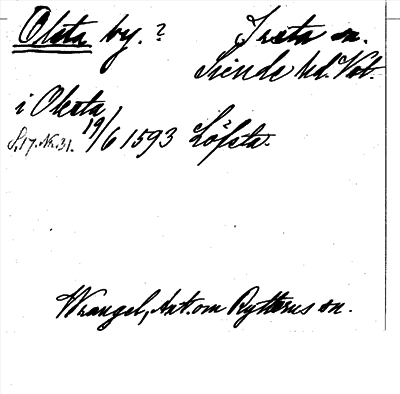 Olsta by. ? Irsta sn.
Siende hd. Vstm.
i Olesta
S.17.Nr.31. 19/6 1593 Löfsta.
Wrangel, Ant. om Rytterns sn.